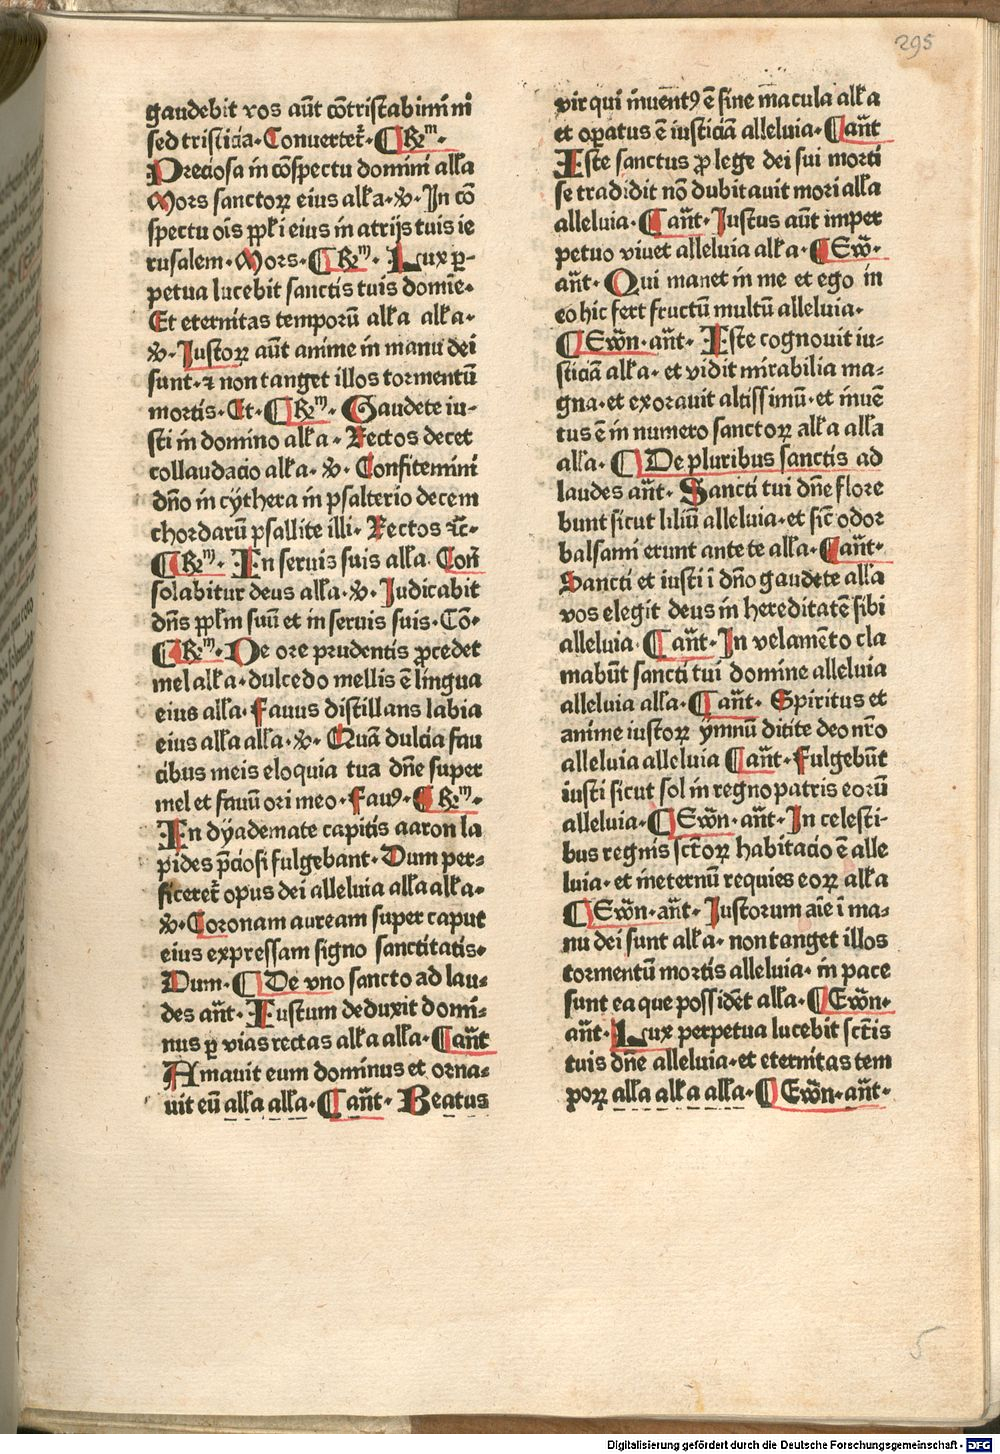 295
gaudebit vos aūt cōtristabimini
sed tristicia. Conuertet᷑. ¶ Rm̄.
Preciosa in cōspectu domini alľa
Mors sanctoꝝ eius alľa. ꝟ. In cō
spectu oīs ppľi eius in atrijs tuis ie
rusalem. Mors. ¶ Rm̄. Lux ꝑ-
petua lucebit sanctis tuis domīe.
Et eternitas temporū alľa alľa.
ꝟ. Iustoꝝ aūt anime in manu dei
sunt. ⁊ non tanget illos tormentū
mortis. Et. ¶ Rm̄. Gaudete iu-
sti in domino alľa. Rectos decet
collaudacio alľa. ꝟ. Confitemini
dño in cythera in psalterio decem
chordarū psallite illi. Rectos ⁊c̄.
¶ Rm̄. In seruis suis alľa. Con̄
solabitur deus alľa. ꝟ. Iudicabit
dñs ppľm suū et in seruis suis. Cō.
¶ Rm̄. De ore prudentis ꝓcedet
mel alľa. dulcedo mellis ē lingua
eius alľa. Fauus distillans labia
eius alľa alľa. ꝟ. Quā dulcia fau
cibus meis eloquia tua dñe super
mel et fauū ori meo. Fauꝰ. ¶ Rm̄.
In dyademate capitis aaron la
pides p̄ciosi fulgebant. Dum per-
ficeret᷑ opus dei alleluia alľa alľa.
ꝟ. Coronam auream super caput
eius expressam signo sanctitatis.
Dum. ¶ De vno sancto ad lau-
des añt. Iustum deduxit domi-
nus ꝑ vias rectas alľa alľa. ¶ añt
Amauit eum dominus et orna-
uit eū alľa alľa. ¶ añt. Beatus
vir qui inuentꝰ ē sine macula alľa
et oꝑatus ē iusticiā alleluia. ¶ añt
Iste sanctus ꝓ lege dei sui morti
se tradidit nō dubitauit mori alľa
alleluia. ¶ añt. Iustus aūt imper
petuo viuet alleluia alľa. ¶ Ew̄.
añt. Qui manet in me et ego in
eo hic fert fructū multū alleluia.
¶ Ew̄n. añt. Iste cognouit iu-
sticiā alľa. et vidit mirabilia ma-
gna. et exorauit altissimū. et inuē
tus ē in numero sanctoꝝ alľa alľa
alľa. ¶ De pluribus sanctis ad
laudes añt. Sancti tui dñe flore
bunt sicut liliū alleluia. et sic̄ odor
balsami erunt ante te alľa. ¶ añt.
Sancti et iusti ī dño gaudete alľa
vos elegit deus in hereditatē sibi
alleluia. ¶ añt. In velamēto cla
mabūt sancti tui domine alleluia
alleluia alľa. ¶ añt. Spiritus et
anime iustoꝝ ymnū dicite deo nr̄o
alleluia alleluia ¶ añt. Fulgebūt
iusti sicut sol in regno patris eorū
alleluia. ¶ Ew̄n. añt. In celesti-
bus regnis sctōꝝ habitacio ē alle
luia. et in eternū requies eoꝝ alľa
¶ Ew̄n. añt. Iustorum aīe ī ma-
nu dei sunt alľa. non tanget illos
tormentū mortis alleluia. in pace
sunt ea que possidēt alľa. ¶ Ew̄n.
añt. Lux perpetua lucebit sctīs
tuis dñe alleluia. et eternitas tem
poꝝ alľa alľa alľa. ¶ Ew̄n. añt.
5
Digitalisierung gefördert durch die Deutsche Forschungsgemeinschaft - DFG